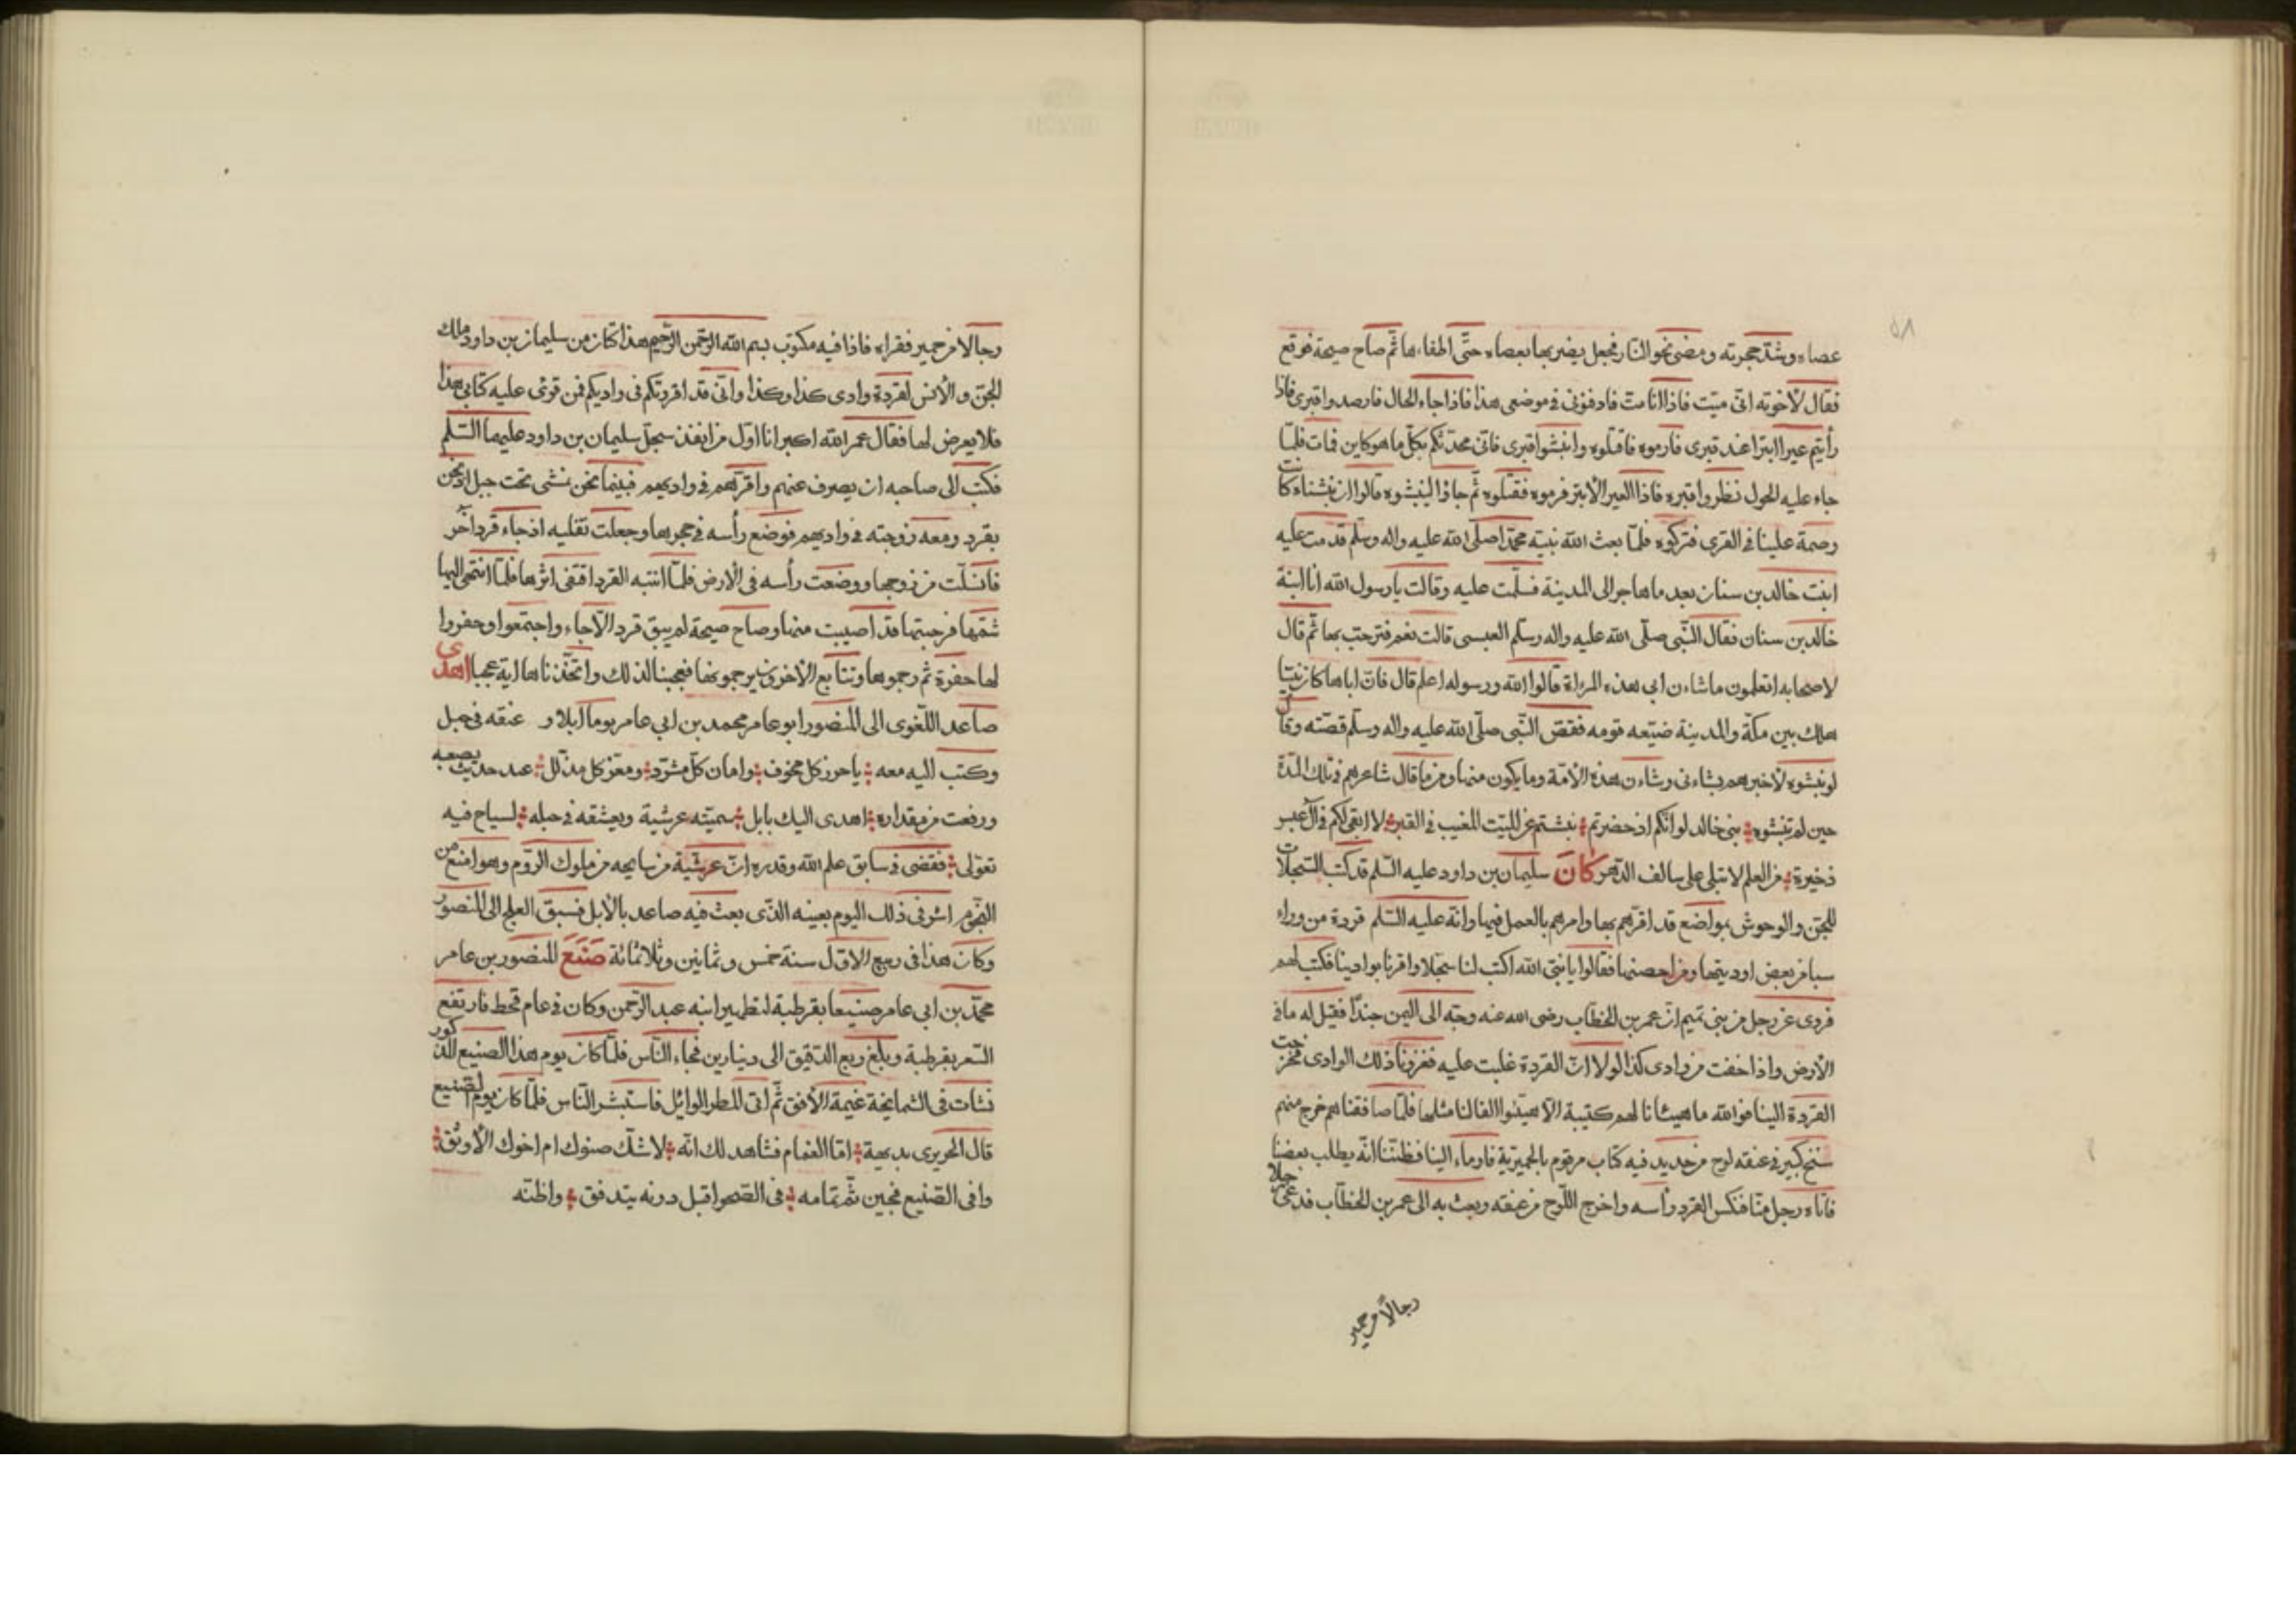 ٥٨
عصاه وشد حجرته ومضى نحو النار فجعل يضربها بعصاه حتى اطفاءها ثم صاح صيحة فوقع
فقال لاخوته انى ميت فاذا انا مت فادفنونى فى موضعى هذا فاذا جاء الحال فارصدوا قبرى فاذا
رأيتم عيرا ابترا عند قبرى فارموه فاقتلوه وانبشوا قبرى فانى محدثكم بكل ما هو كاين فمات فلما
جاء عليه الحول نظروا قبره فاذا العير الأبتر فرموه فقتلوه ثم جاؤا لينبشوه قالوا ان نبشناه كانت
وصمة علينا فى القرى فتركوه فلما بعث الله نبيه محمدا صلى الله عليه واله وسلم قدمت عليه
ابنت خالد بن سنان بعد ما هاجر الى المدينة فسلمت عليه وقالت يا رسول الله انا ابنة
خالد بن سنان فقال النبى صلى الله عليه واله وسلم العبسى قالت نعم فترحب بها ثم قال
لاصحابه اتعلمون ما شاءن ابى هذه المرءة قالوا الله ورسوله اعلم قال فان اباها كان نبيا
هلك بين مكة والمدينة ضيعه قومه فقص النبى صلى الله عليه واله وسلم قصته وقال
لو نبشوه لاخبرهم بشاءنى وشاءن هذه الأمة وما يكون منها ومما قال شاعرهم فى تلك المدة
حين لم تنبشوه بنى خالد لو انكم اذ حضرتم نبشتم عن الميت المغيب فى القبر لا ابقى لكم فى آل عبس
ذخيرة من العلم لا تبلى على سالف الدهر كَانَ سليمان بن داود عليه السلم قد كتب السجلات
للجن والوحوش بمواضع قد اقرهم بها وامرهم بالعمل فيها وانه عليه السلم قردة من وراء
سبا من بعض اوديتها ومن احصنها فقالوا يا نبى الله اكتب لنا سجلا واقرنا بوادينا فكتب لهم
فروى عن رجل من بنى تميم ان عمر بن الخطاب رضى الله عنه وجه الى اليمن جندا فقيل له ما فى
الأرض واذا خفت من وادى كذا لولا ان القردة غلبت عليه فغزونا ذلك الوادى فخرجت
القردة الينا فوالله ما هيئانا لهم كتيبة الا هيئوا الفا لنا مثلها فلما صافقناهم خرج منهم
سنخ كبير فى عنقه لوح من حديد فيه كتاب مرقوم بالحميرية فاوماء الينا فظننا انه يطلب بعضنا
فاتاه رجل منا فنكس القرد رأسه واخرج اللوح من عنقه وبعث به الى عمر بن الخطاب فدعى رجلا
رجالا من حمير
رجالا من حمير فقراه فاذا فيه مكتوب بسم الله الرحمن الرحيم هذا كتاب من سليمان بن داود ملك
الجن والأنس لقردة وادى كذا وكذا وانى قد اقررتكم فى واديكم فمن قرئ عليه كتابى هذا
فلا يعرض لها فقال عمر الله اكبر انا اول من انفذ سجل سليمان بن داود عليهما السلم
فكتب الى صاحبه ان يصرف عنهم واقرهم فى واديهم فبينما نحن نمشى تحت جبل اذ نحن
بقرد ومعه زوجته فى واديهم فوضع رأسه فى حجرها وجعلت تقليه اذ جاء قرد آخر
فانسلت من زوجها ووضعت رأسه فى الأرض فلما انتبه القرد اقتفى اثرها فلما انتهى اليها
شمها فرجبتها قد اصيبت منها وصاح صيحة لم يبق قرد الا جاء واجتمعوا وحفروا
لها حفرة ثم رجموها وتتابع الأخرين يرجمونها فعجبنا لذلك واتخذناها اية عجبا اهدى
صاعد اللغوى الى المنصور ابو عامر محمد بن ابى عامر يوما ايلا و عنقه فى حبل
وكتب اليه معه يا حرز كل مخوف وامان كل مشرد ومعز كل مذلل عبد حديث بضبعه
ورفعت من مقداره اهدى اليك بابل سميته غرسية وبعثته فى حبله لسياح فيه
تعولى فقضى فى سابق علم الله وقدره ان غرسية من سايحه من ملوك الروم وهو امنع من
النجم اسر فى ذلك اليوم بعينه الذى بعث فيه صاعد بالأيل فسبق العلج الى المنصور
وكان هذا فى ربيع الاول سنة خمس وثمانين وثلاثمائة صَنَعَ المنصور بن عامر
محمد بن ابى عامر صنيعا بقرطبة لتطهير ابنه عبد الرحمن وكان فى عام قحط فارتفع
السعر بقرطبة وبلغ ربع الدقيق الى دينارين فجاء الناس فلما كان يوم هذا الصنيع المذكور
نشات فى السما بخة غيمة الأفق ثم اتى المطر الوايل فاستبشر الناس فلما كان يوم الصنيع
قال الحريرى بديهة اما الغمام فشاهد لك انه لا شك صنوك ام اخوك الأوثق
وافى الصنيع فحين تم تمامه فى الصحو اقبل دونه يتدفق واظنه